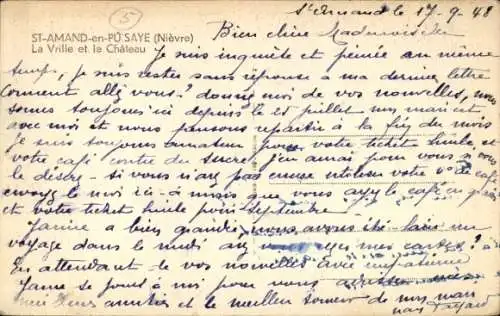 5
St Amand le 17-9-48
ST-AMAND-en-PUISAYE (Nièvre)
La Vrille et le Château
Bien chère Mademoiselle
Je suis inquiète et peinée en même
temps, je suis restée sans réponse a ma dernière lettre
comment allé vous? donnez moi de vos nouvelles, nous
somes toujours ici depuis le 25 juillet mon mari est
avec moi et nous pensons repartir à la fin du mois
Je suis toujours amateur pour votre ticket huile, et
votre café contre du sucre, j'en aurai pour vous si vous
le désirez - si vous n'avez pas encore utiliser votre de café
envoyez le moi ici - à moins que vous ayez le café en
et votre ticket huile pour Septembre
Janine a bien grandie, nous avons été faire un
voyage dans le midi avez vous mes cartes?
En attendant de vos nouvelles avec impatience
Janine se joint à moi pour vous adresser
amitiés et le meilleur souvenir de mon mari